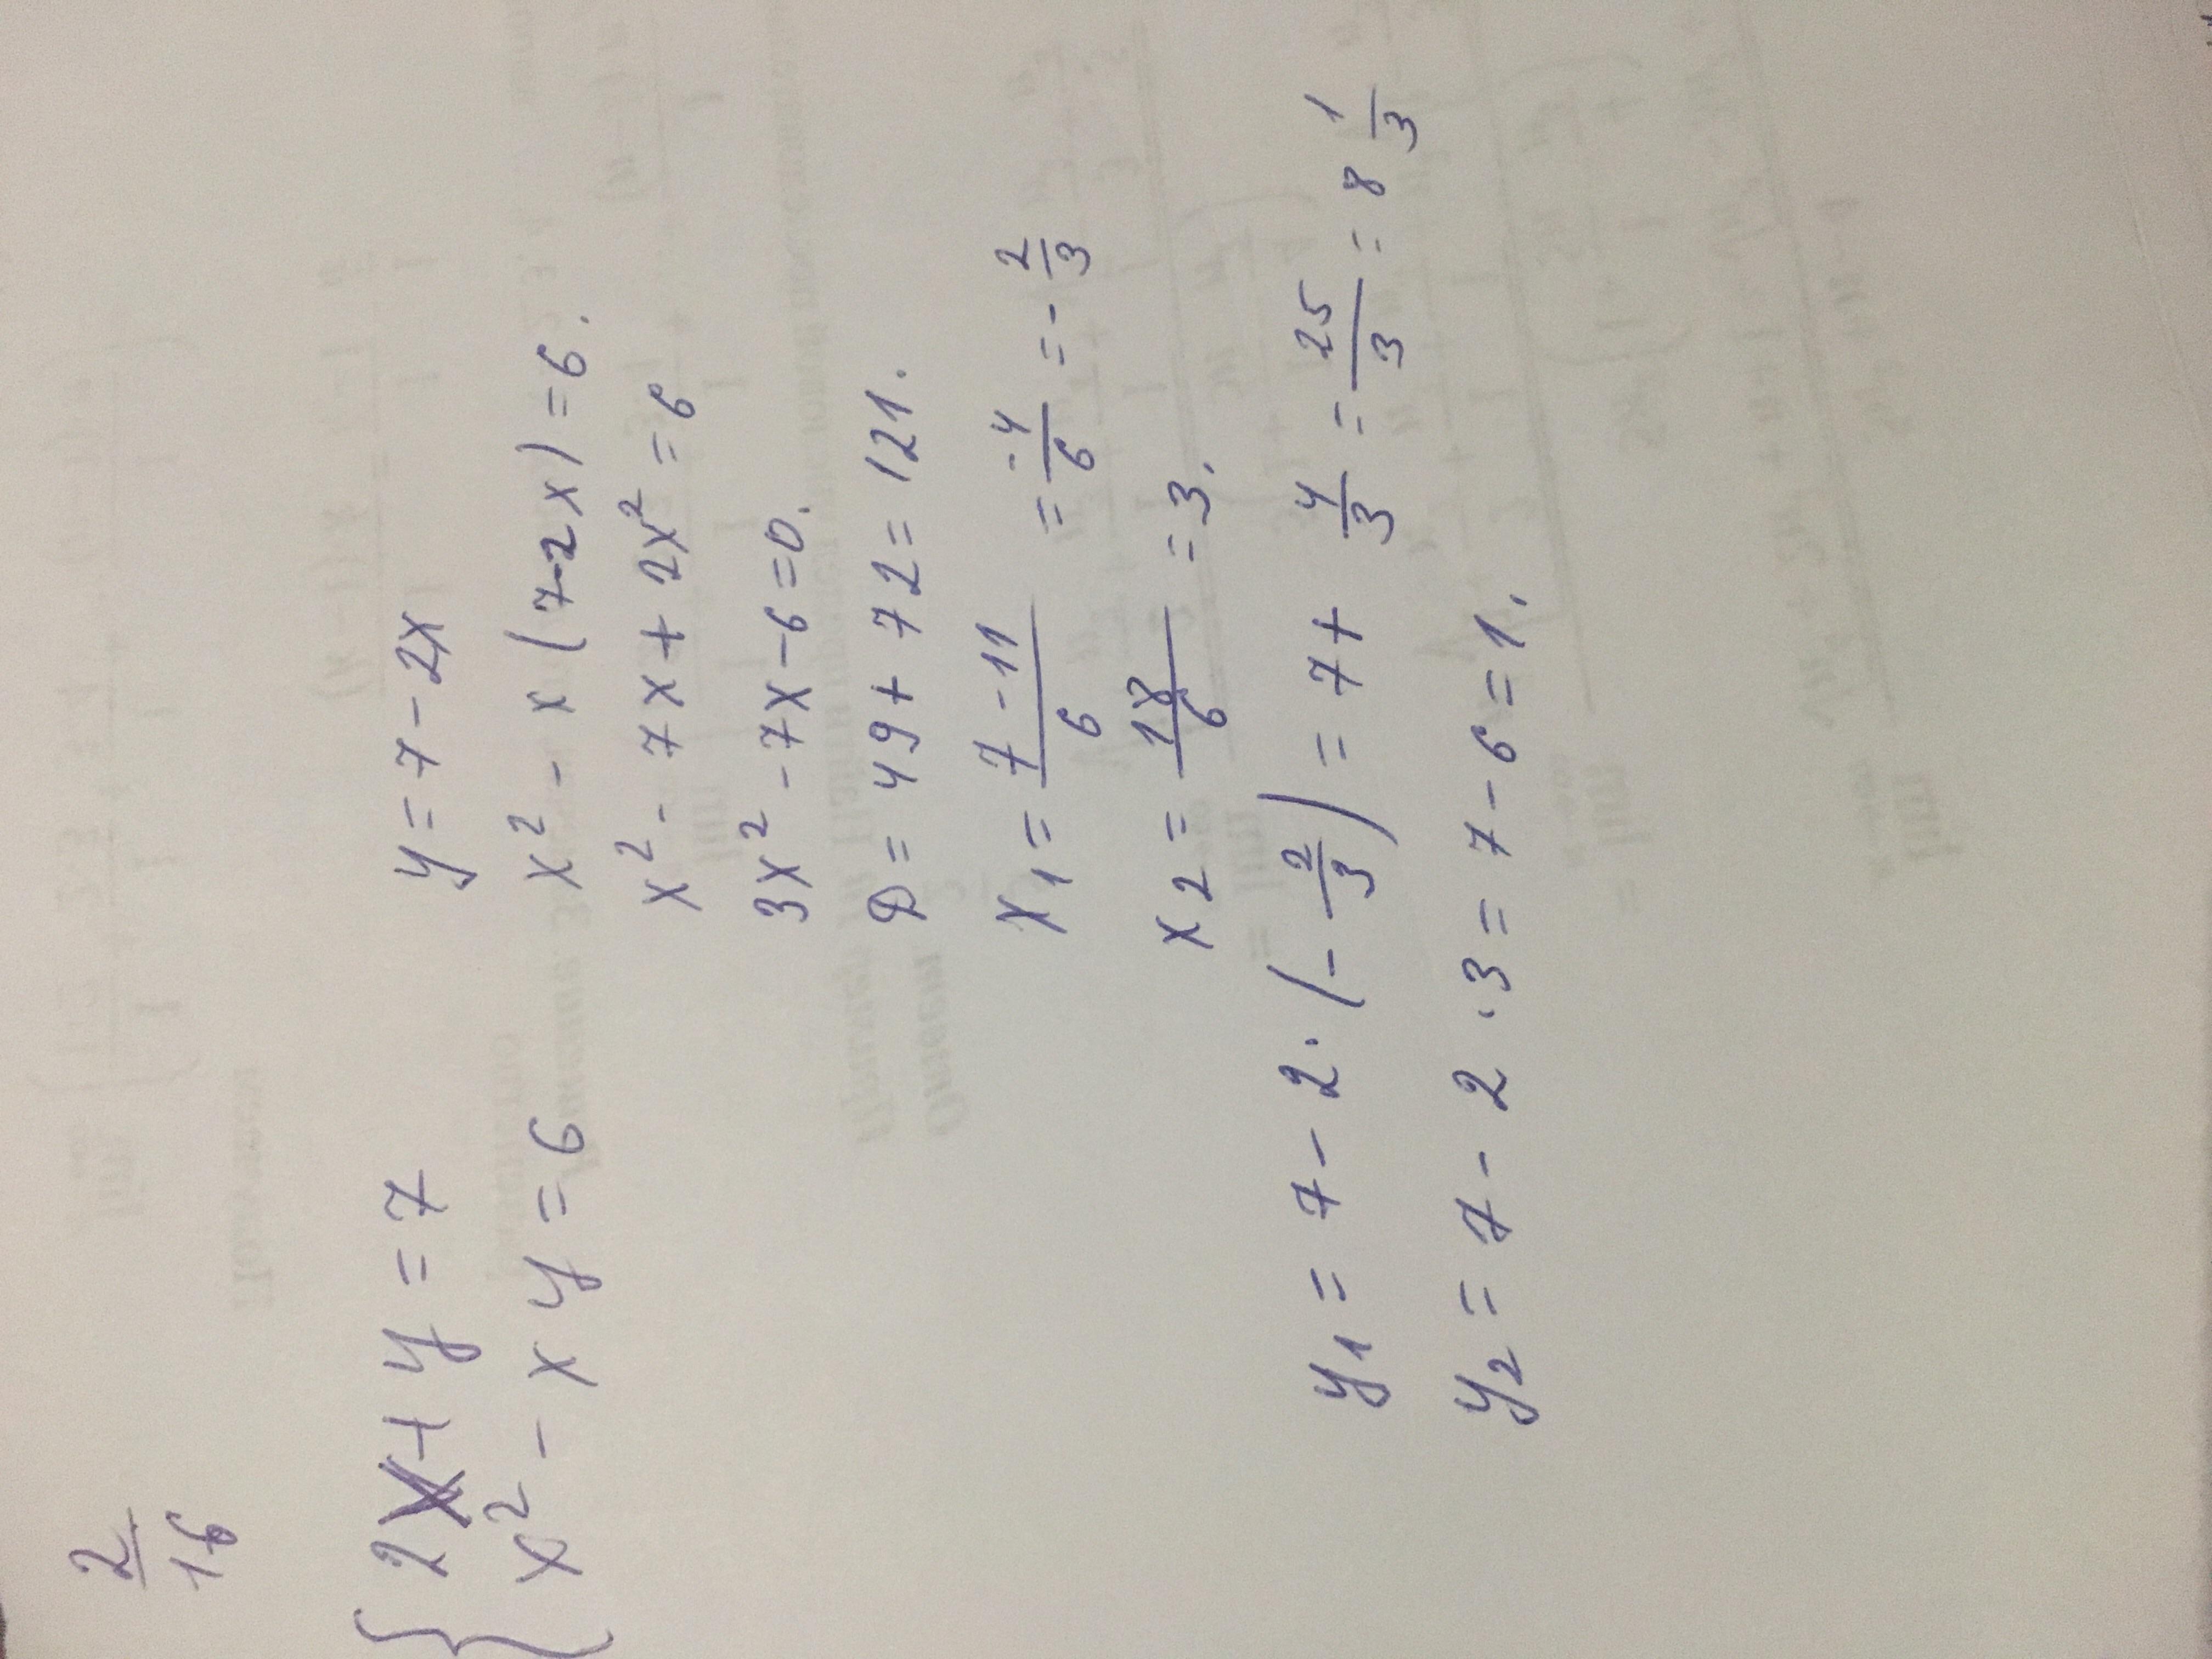 2/16
{ 2x + y = 7
x² - xy = 6
y = 7 - 2x
x² - x (7-2x) = 6.
x² - 7x + 2x² = 6
3x² - 7x - 6 = 0.
D = 49 + 72 = 121.
x₁ = (7 - 11)/6 = -4/6 = -2/3
x₂ = 18/6 = 3.
y₁ = 7 - 2 · (-2/3) = 7 + 4/3 = 25/3 = 8 1/3
y₂ = 7 - 2 · 3 = 7 - 6 = 1.